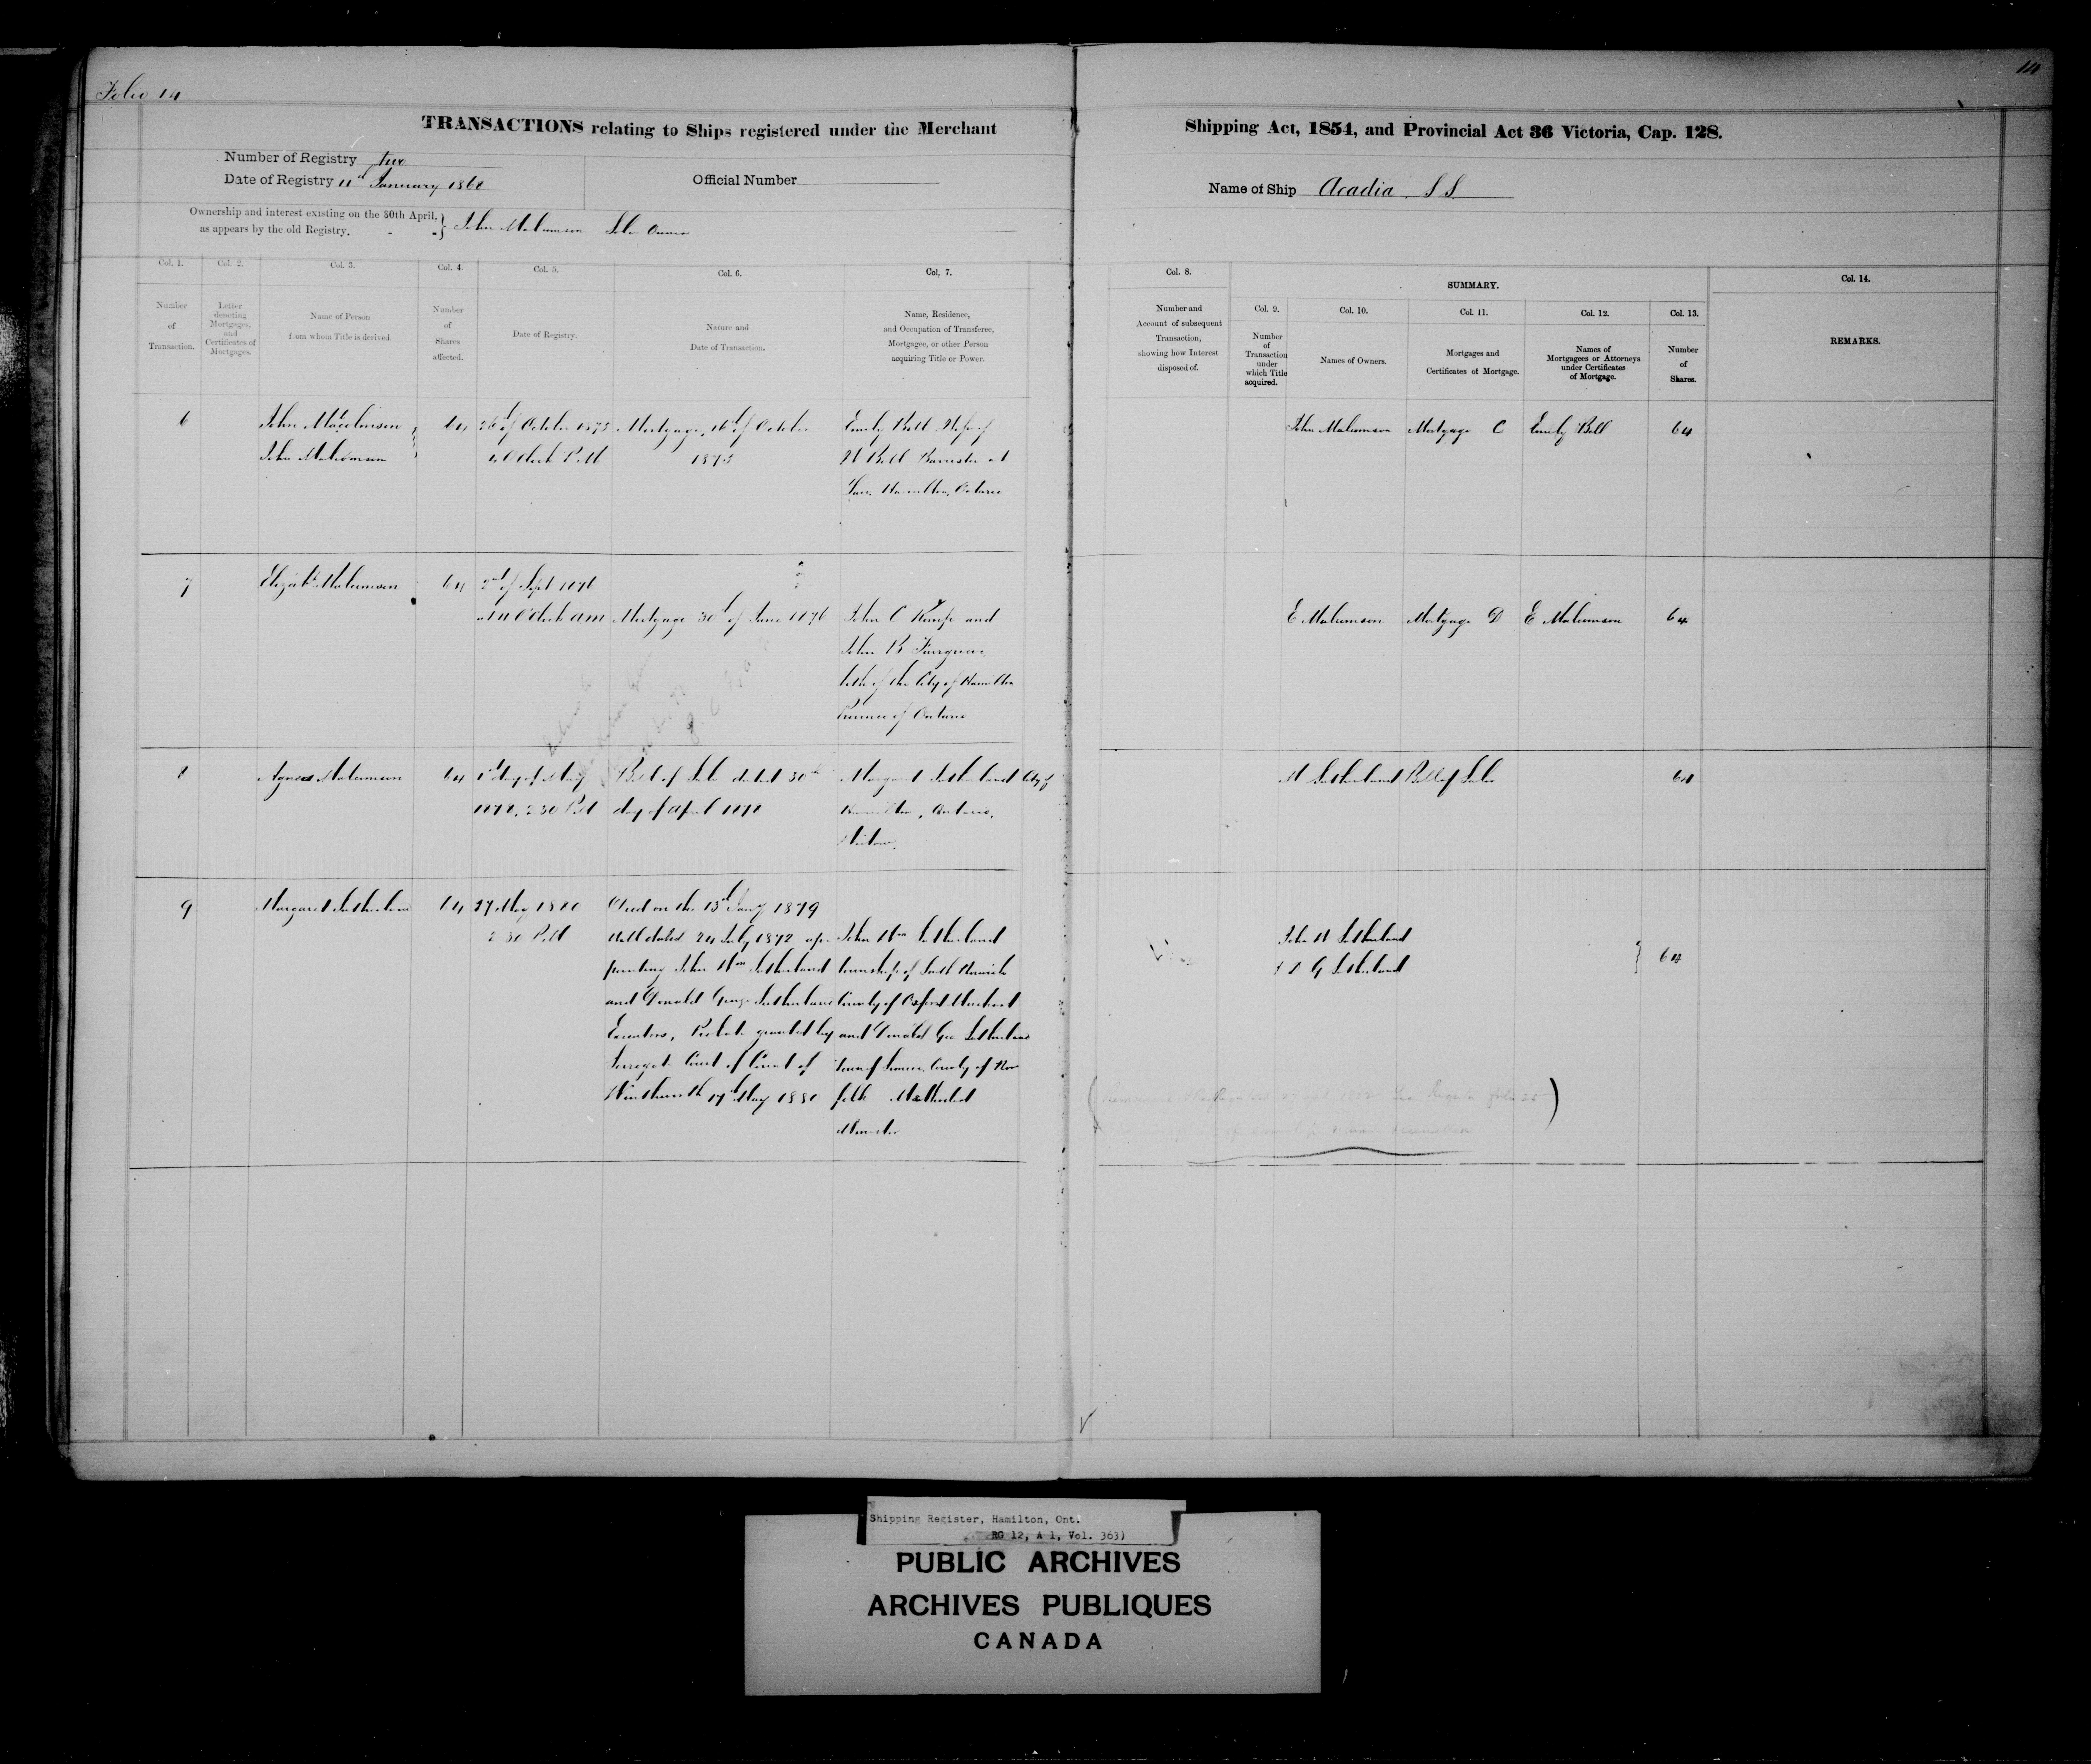 Folio 14
14
TRANSACTIONS relating to Ships registered under the Merchant
Shipping Act, 1854, and Provincial Act 36 Victoria, Cap. 128.
Number of Registry two
Date of Registry 11th January 1868
Official Number
Name of Ship Acadia. S S.
Ownership and interest existing on the 30th April.
as appears by the old Registry.
John Malcomson Sole Owner
Col. 1.
Number
of
Transaction.
Col. 2.
Letter
denoting
Mortgages,
and
Certificates of
Mortgages.
Col. 3.
Name of Person
from whom Title is derived.
Col. 4.
Number
of
Shares
affected.
Col. 5.
Date of Registry.
Col. 6.
Nature and
Date of Transaction.
Col. 7.
Name, Residence,
and Occupation of Transferee,
Mortgagee, or other Person
acquiring Title or Power.
Col. 8.
Number and
Account of subsequent
Transaction,
showing how Interest
disposed of.
SUMMARY.
Col. 9.
Number
of
Transaction
under
which Title
acquired.
Col. 10.
Names of Owners.
Col. 11.
Mortgages and
Certificates of Mortgage.
Col. 12.
Names of
Mortgagees or Attorneys
under Certificates
of Mortgage.
Col. 13.
Number
of
Shares.
Col. 14.
REMARKS.
6
John Malcolmson
John Malcomson
64
26th of October 1873
4 OClock P.M
Mortgage, 16th of October
1873
Emily Bell Wife of
W Bell Barrister at
Law, Hamilton, Ontario
John Malcomson
Mortgage C
Emily Bell
64
7
Elizabth Malcomson
64
2nd of Sept 1876
at 11 OClock am
Mortgage 30th of June 1876
John C Kemp and
John B Fairgrieve,
both of the City of Hamilton
Province of Ontario
E Malcomson
Mortgage D
E Malcomson
64
8
Agnes Malcomson
64
1st day of May
1878, 2 30 PM
Bill of Sale dated 30th
day of april 1878
Margaret Sutherland City of
Hamilton, Ontario,
Widow.
M Sutherland
Bill of Sale
64
9
Margaret Sutherland
64
27 May 1880
2 30 P.M
Died on the 13th Jany 1879
Will dated 24 July 1872 ap
pointing John Wm Sutherland
and Donald George Sutherland
Executors, Probate granted by
Surrogate Court of Count of
Wentworth 17th May 1880
John Wm Sutherland
township of South Norwich
County of Oxford Merchant
and Donald Geo Sutherland
Town of Simcoe County of Nor
folk Methodist
Minister
John W Sutherland
& D G Sutherland
64
Shipping Register, Hamilton, Ont.
RG 12, A 1, Vol. 363)
PUBLIC ARCHIVES
ARCHIVES PUBLIQUES
CANADA